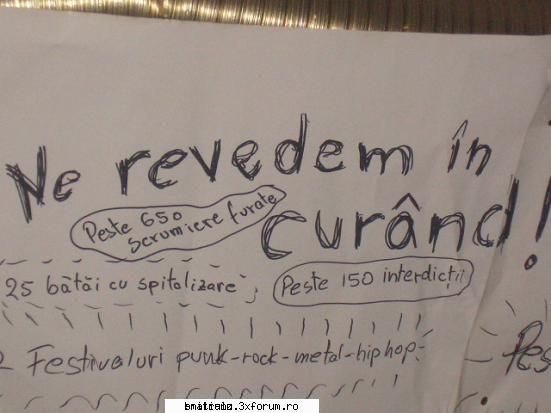 Ne revedem în
curând!
Peste 650
scrumiere furate
25 bătăi cu spitalizare;
Peste 150 interdicții
2 Festivaluri punk-rock-metal-hip hop-
Pes
.3xforum.ro